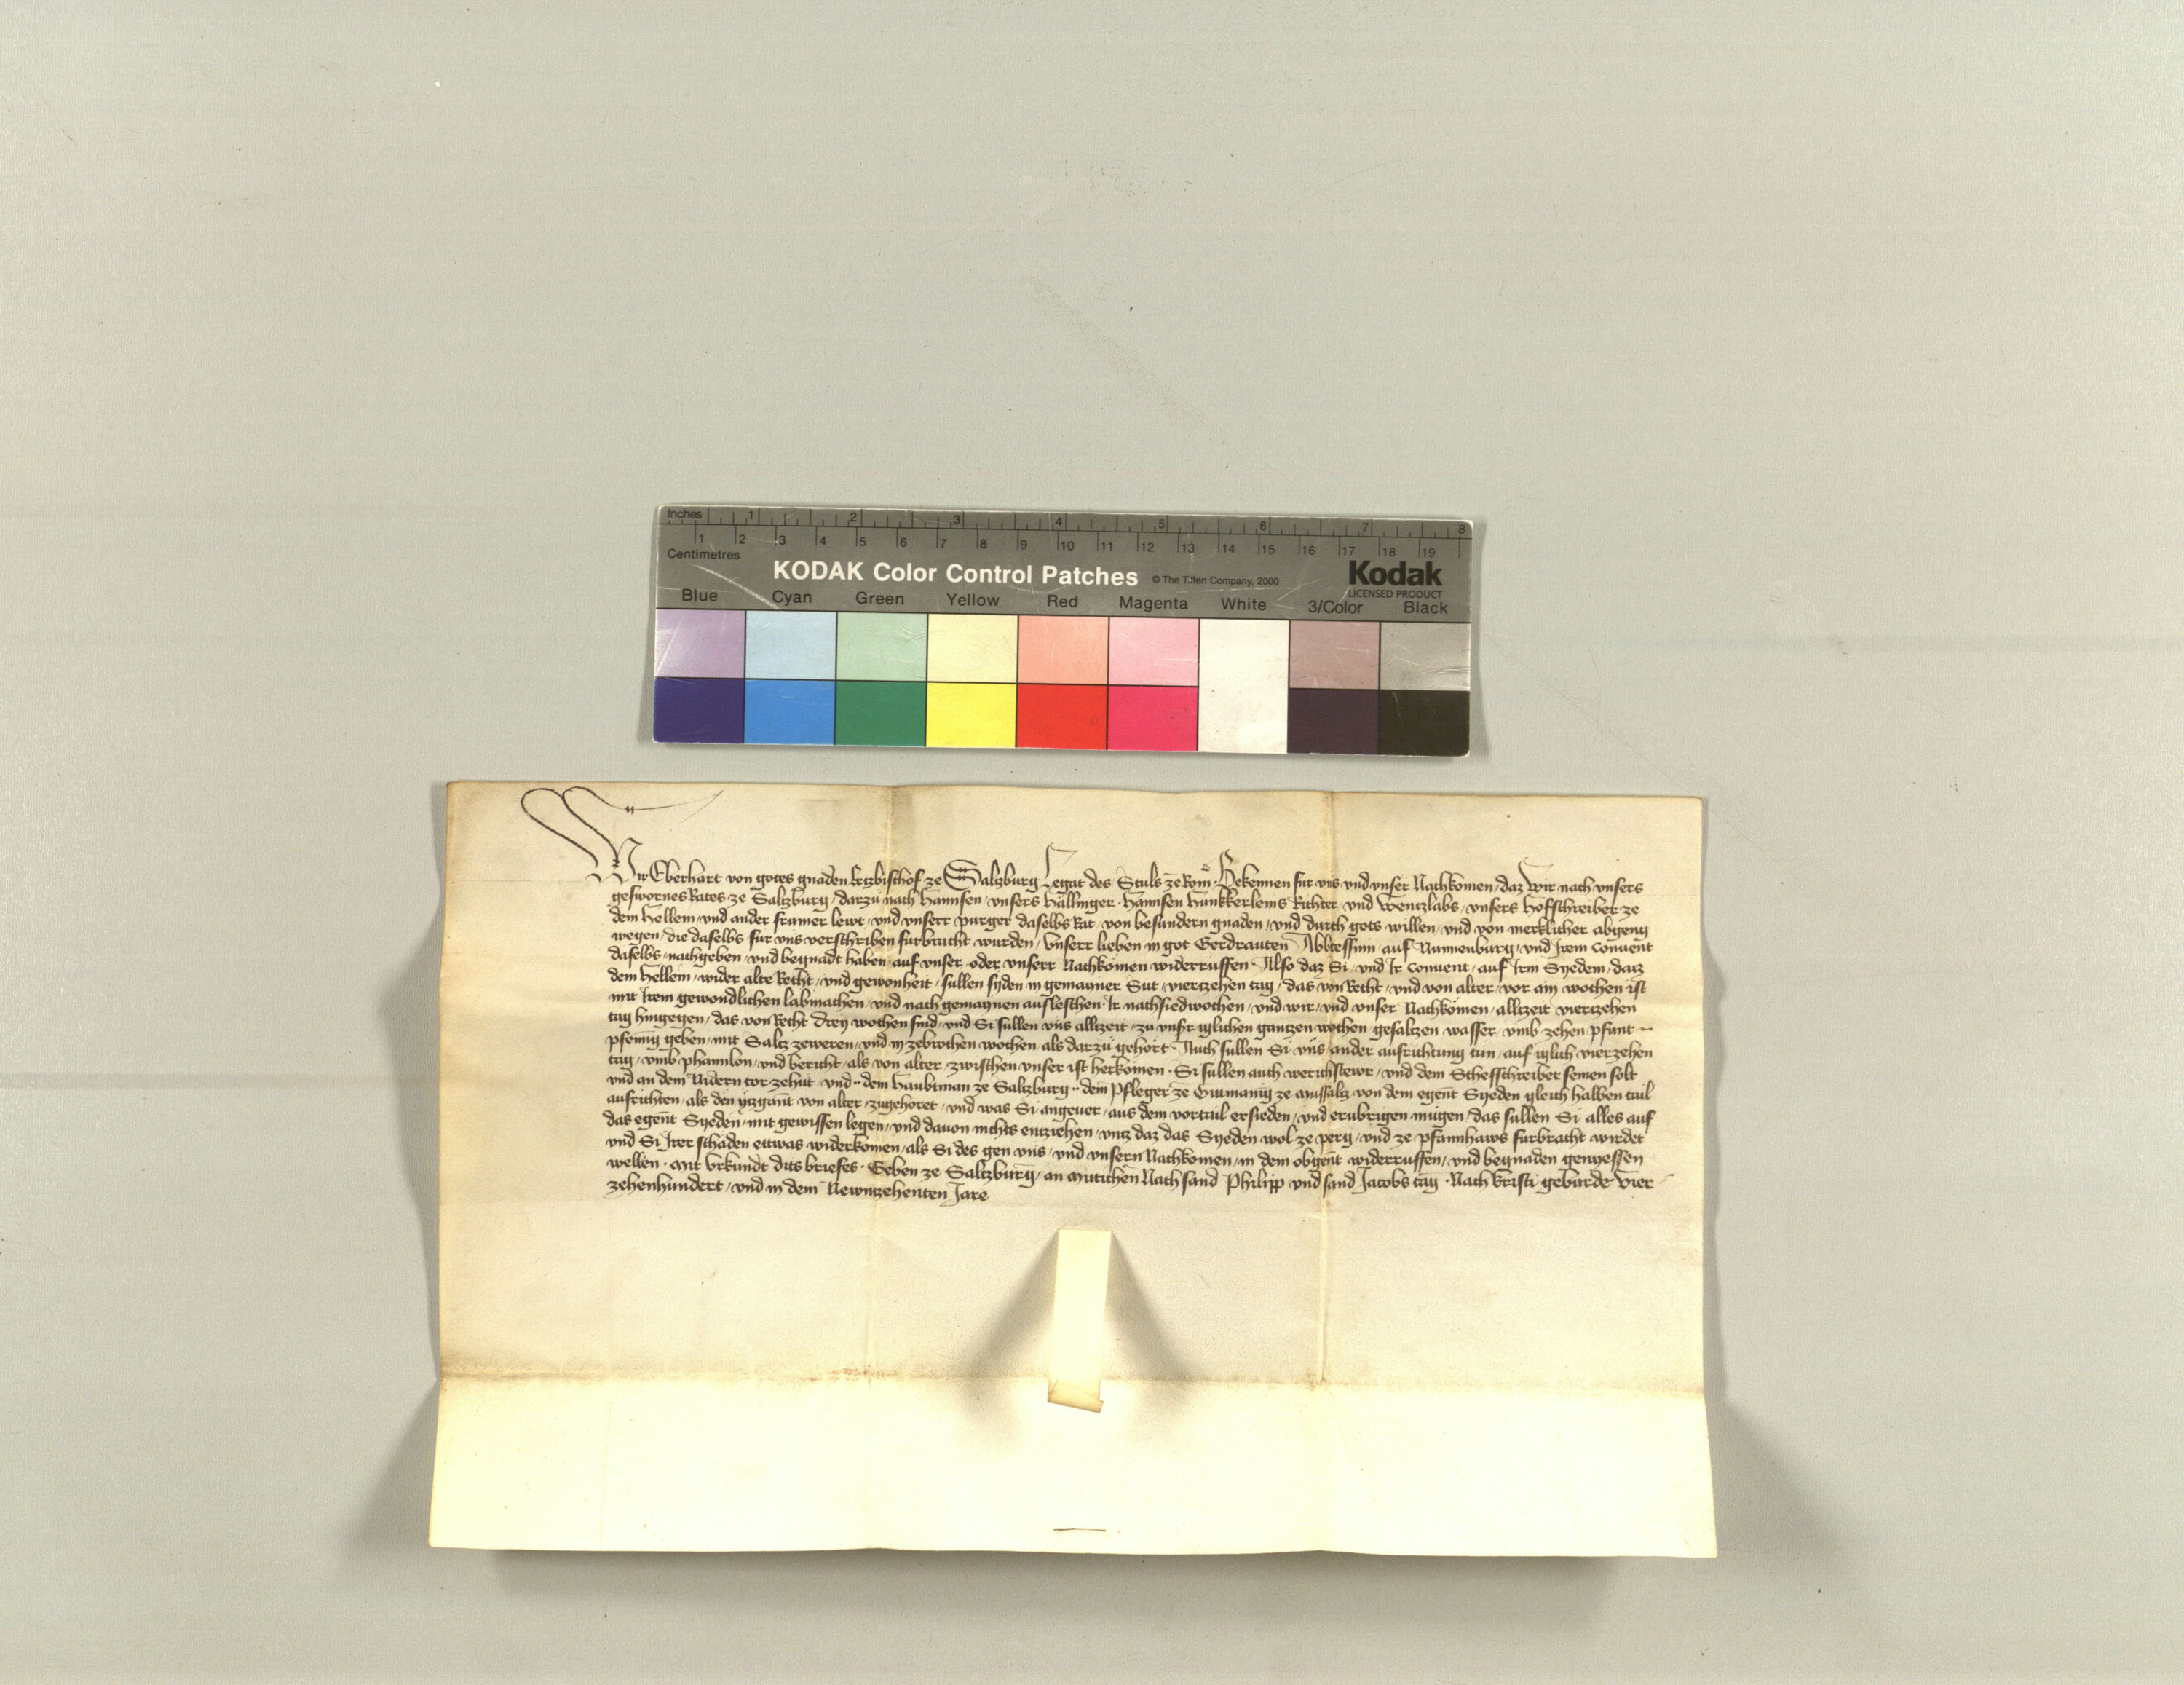 Inches 1 2 3 4 5 6 7 8
1 2 3 4 5 6 7 8 9 10 11 12 13 14 15 16 17 18 19
Centimetres
KODAK Color Control Patches © The Tiffen Company, 2000 Kodak
LICENSED PRODUCT
Blue Cyan Green Yellow Red Magenta White 3/Color Black
Wir Eberhart von gotes gnaden Ertzbischof ze Saltzburg Legat des Stuls ze Rom Bekennen fur vns vnd vnser Nachkomen / daz wir nach vnsers
geswornes Rates ze Saltzburg / darzu nach Hannsen / vnsers Hallinger · Hannsen Hunkkerleins Richter vnd Wentzlabs / vnsers Hofschreiber ze
dem Hellein / vnd ander frumer lewt / vnd vnserr purger daselbs Rat / von besundern gnaden / vnd durch gots willen / vnd von merklicher abgeng
wegen / die daselbs fur vns verschriben furbracht wurden / vnserr lieben in got Gerdrauten Abbtessinn auf Nunnenburg / vnd Irem Conuent
daselbs / nachgeben / vnd begnadt haben / auf vnser / oder vnserr Nachkomen widerruffen · Also daz Si / vnd Ir Conuent / auf Irm Syeden / datz
dem Hellein / wider alte Recht / vnd gewonheit / sullen syden in gemayner Sut / viertzehen tag / das von Recht / vnd von alter / vor ain wochen ist
mit Irem gewondlichen labmachen / vnd nach gemaynen ausleschen Ir nachsiedwochen / vnd wir / vnd vnser Nachkomen / alltzeit viertzehen
tag hingegen / das von Recht drey wochen sind / vnd Si sullen vns alltzeit / zu vnsr iglichen gantzen wochen / gesaltzen wasser / vmb zehen pfunt
pfennig geben / mit Saltz zeweren / vnd in zebrochen wochen als darzu gehort · Auch sullen Si vns ander ausrichtung tun / auf iglich vierzehen
tag / vmb phannlon / vnd bericht / als von alter / zwischen vnser ist herkomen · Si sullen auch werichstewr / vnd dem Scheffschreiber seinen solt
vnd an dem Nidern tor zehut / vnd dem Haubtman ze Saltzburg dem Pfleger ze Tittmanig ze mussaltz von dem egent Syeden gleich halben tail
ausrichten / als den yzgant von alter / zugehoret / vnd was Si angeuer / aus dem vortail ersieden / vnd erubrigen mugen / das sullen Si alles auf
das egent Syeden / mit gewissen legen / vnd dauon nichts entziehen / vntz daz das Syeden wol ze perg / vnd ze pfannhaws furbracht wirdet
vnd Si Irer schaden ettwas widerkomen / als Si des gen vns / vnd vnsern Nachkomen / in dem obgent widerruffen / vnd begnaden geniessen
wellen · Mit vrkundt dits briefes · Geben ze Saltzburg / an Mitichen Nach sand Philipp vnd sand Jacobs tag · Nach Kristi geburde vier
zehenhundert / vnd in dem Newnzehenten Jare